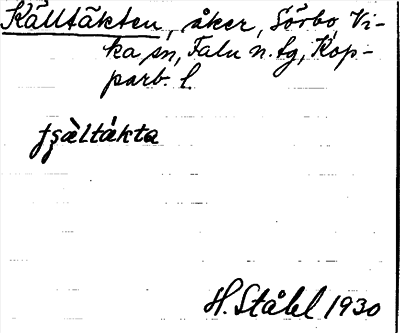 Källtäkten, åker, Sörbo, Vi-
ka sn, Falu n. tg, Kop-
parb. l.
tʂàltákta
H. Ståhl 1930